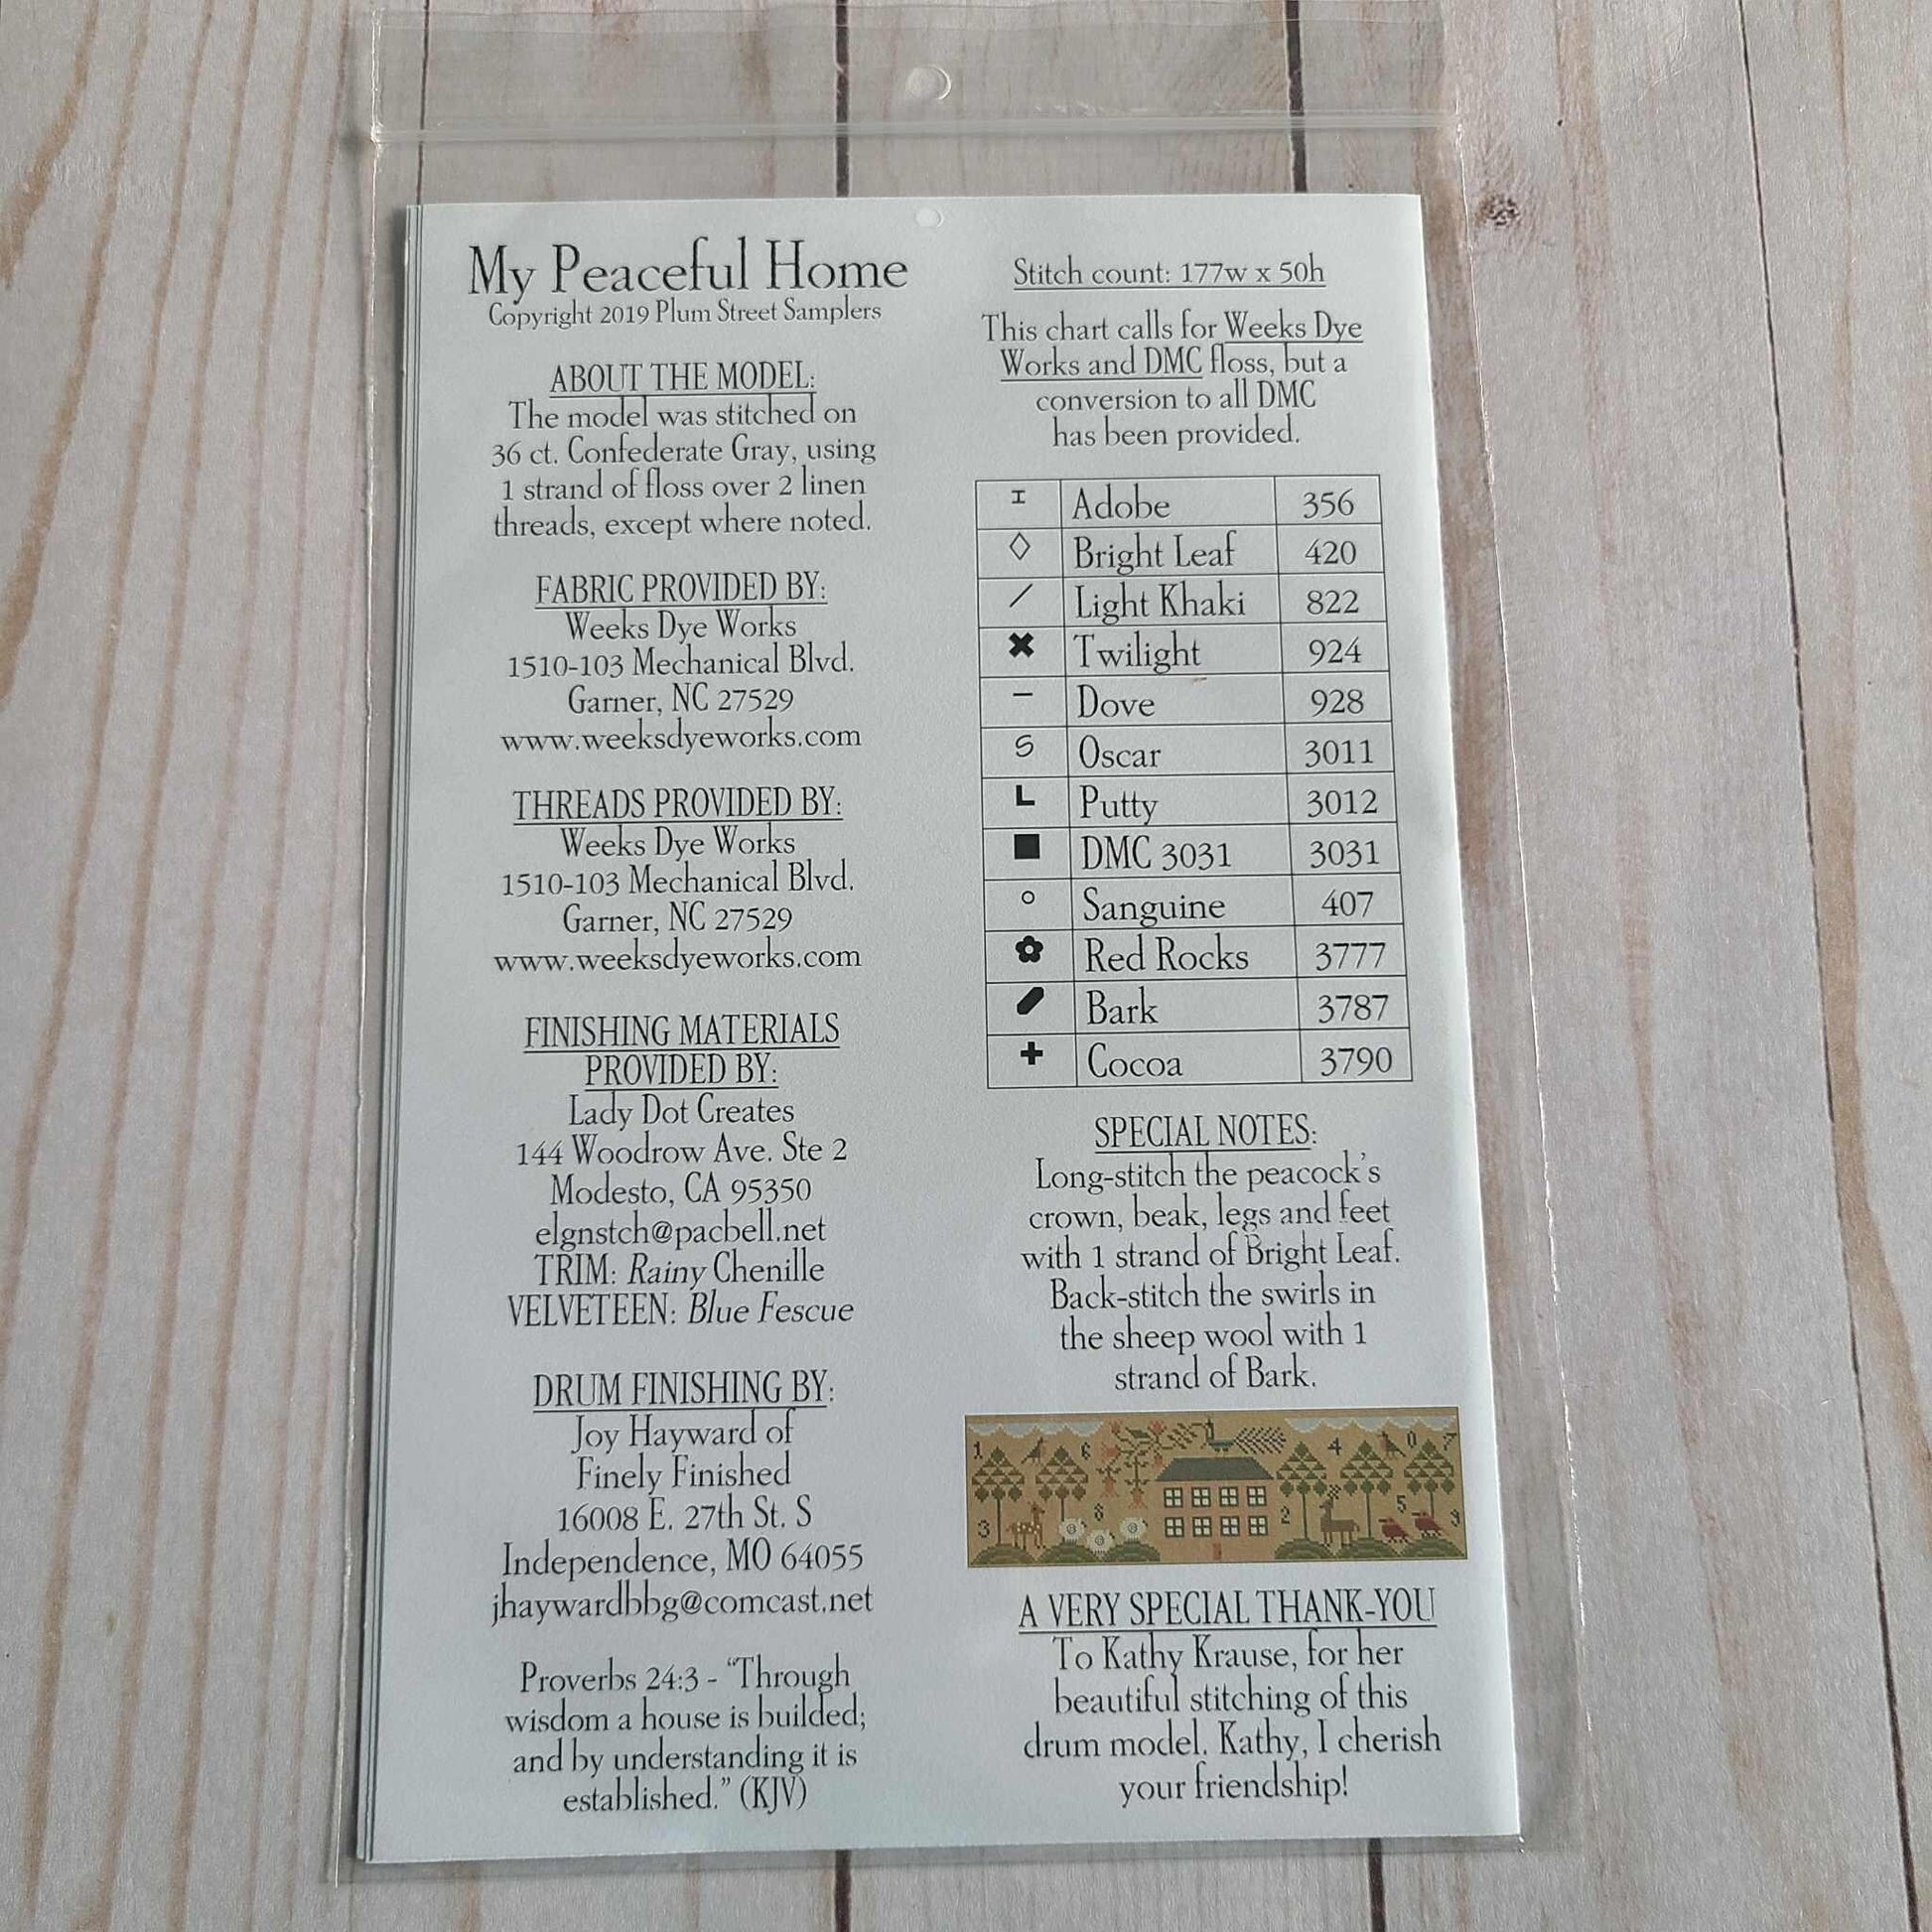 My Peaceful Home
Copyright 2019 Plum Street Samplers
ABOUT THE MODEL:
The model was stitched on
36 ct. Confederate Gray, using
1 strand of floss over 2 linen
threads, except where noted.
FABRIC PROVIDED BY:
Weeks Dye Works
1510-103 Mechanical Blvd.
Garner, NC 27529
www.weeksdyeworks.com
THREADS PROVIDED BY:
Weeks Dye Works
1510-103 Mechanical Blvd.
Garner, NC 27529
www.weeksdyeworks.com
FINISHING MATERIALS
PROVIDED BY:
Lady Dot Creates
144 Woodrow Ave. Ste 2
Modesto, CA 95350
elgnstch@pacbell.net
TRIM: Rainy Chenille
VELVETEEN: Blue Fescue
DRUM FINISHING BY:
Joy Hayward of
Finely Finished
16008 E. 27th St. S
Independence, MO 64055
jhaywardbbg@comcast.net
Proverbs 24:3 - “Through
wisdom a house is builded;
and by understanding it is
established.” (KJV)
Stitch count: 177w x 50h
This chart calls for Weeks Dye
Works and DMC floss, but a
conversion to all DMC
has been provided.
Adobe 356
Bright Leaf 420
Light Khaki 822
Twilight 924
Dove 928
Oscar 3011
L Putty 3012
DMC 3031 3031
Sanguine 407
Red Rocks 3777
Bark 3787
Cocoa 3790
SPECIAL NOTES:
Long-stitch the peacock's
crown, beak, legs and feet
with 1 strand of Bright Leaf.
Back-stitch the swirls in
the sheep wool with 1
strand of Bark.
1 6 4 0 7
3 8 2 5 9
A VERY SPECIAL THANK-YOU
To Kathy Krause, for her
beautiful stitching of this
drum model. Kathy, I cherish
your friendship!